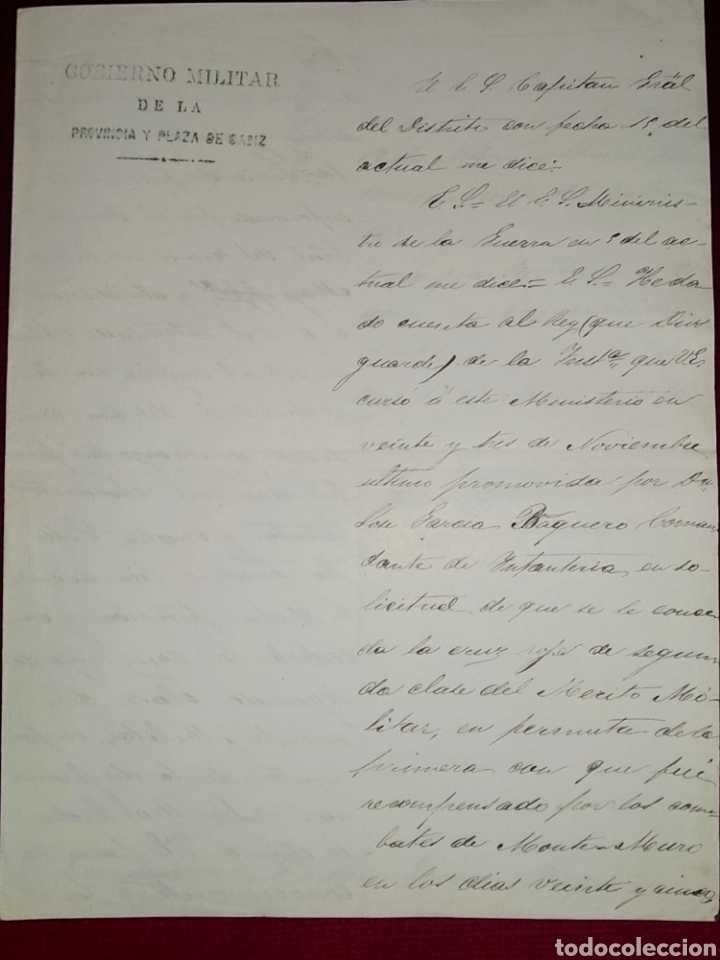 GOBIERNO MILITAR
DE LA
PROVINCIA Y PLAZA DE CADIZ
El E. S. Capitan Gräl
del Distrito con fecha 15 del
actual me dice:
E. S.= El E. S. Minis-
tro de la Guerra en 5 del ac-
tual me dice.= E. S.= He da-
do cuenta al Rey (que Dios
guarde) de la Insta. que V.E.
cursó á este Ministerio en
veinte y tres de Noviembre
ultimo promovida por Dn.
José Garcia Baquero Coman
dante de Infanteria, en so-
licitud de que se le conce-
da la cruz roja de segun
da clase del Merito Mi-
litar, en permuta de la
primera con que fué
recompensado por los com-
bates de Monte-Muro
en los dias veinte y cinco,
todocoleccion.net